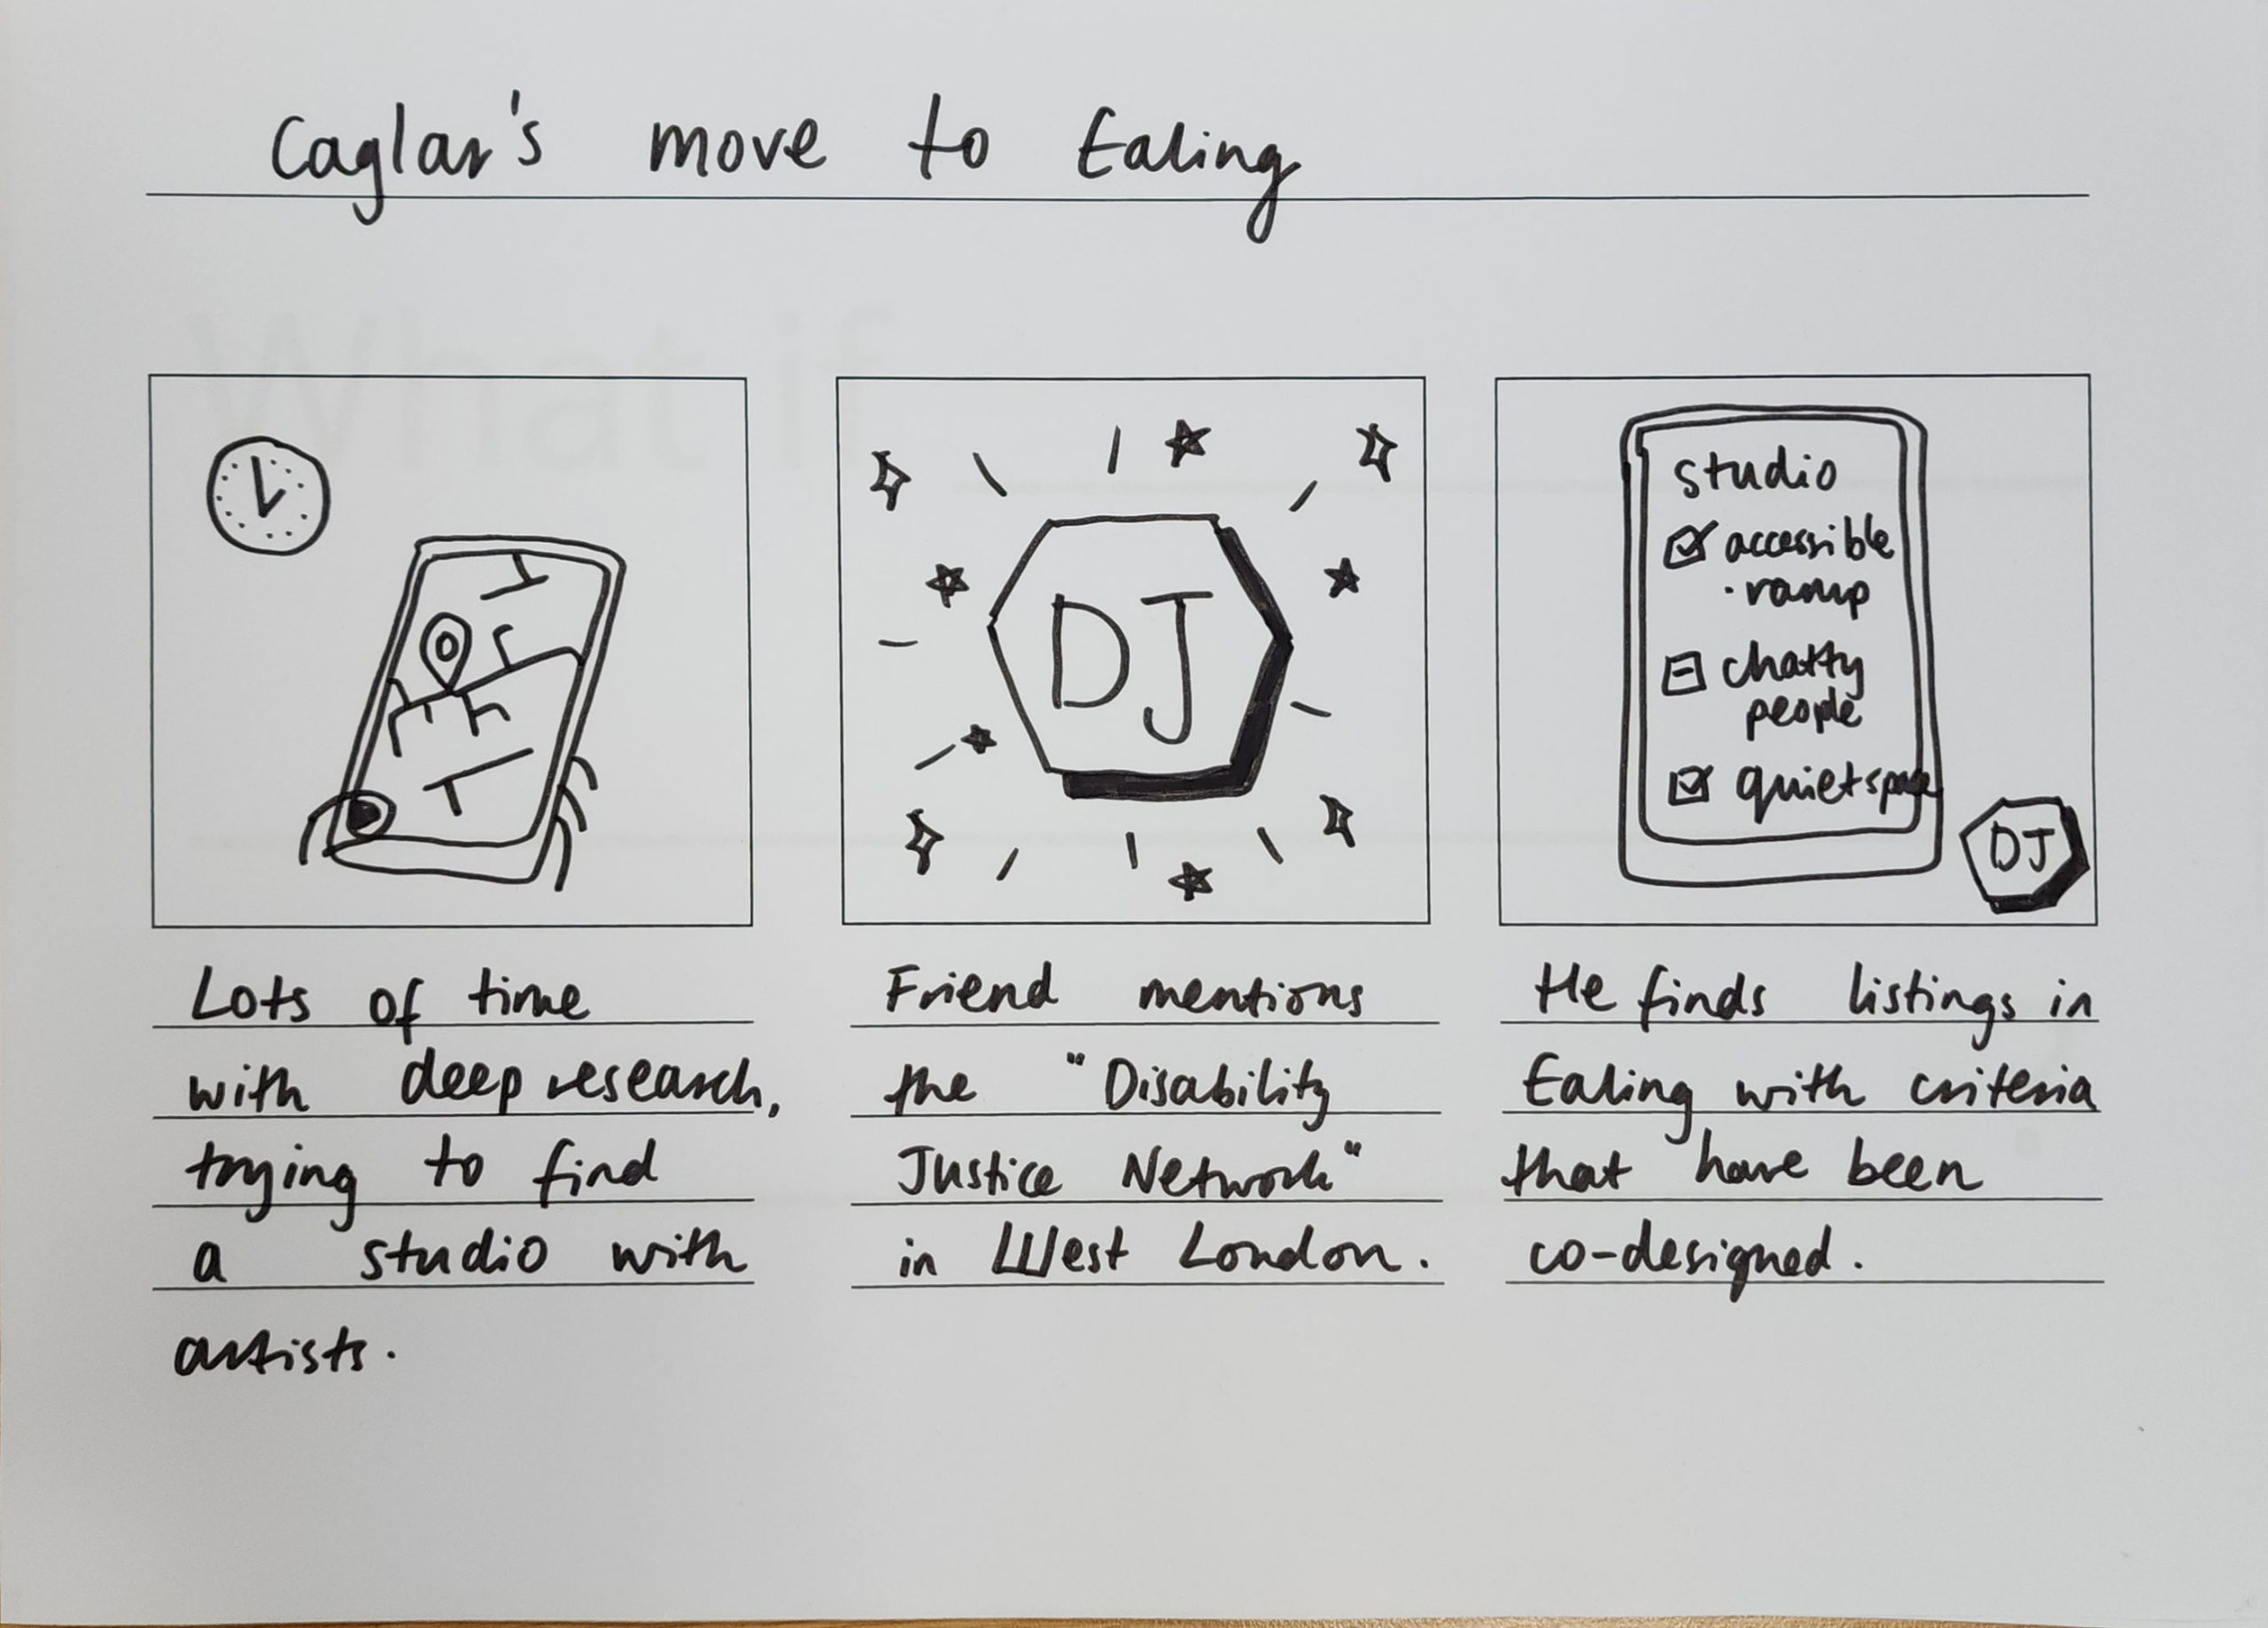 Caglar's move to Ealing
What if
DJ
studio
accessible
· ramp
chatty
people
quiet space
DJ
Lots of time
with deep research,
trying to find
a studio with
artists.
Friend mentions
the "Disability
Justice Network"
in West London.
He finds listings in
Ealing with criteria
that have been
co-designed.